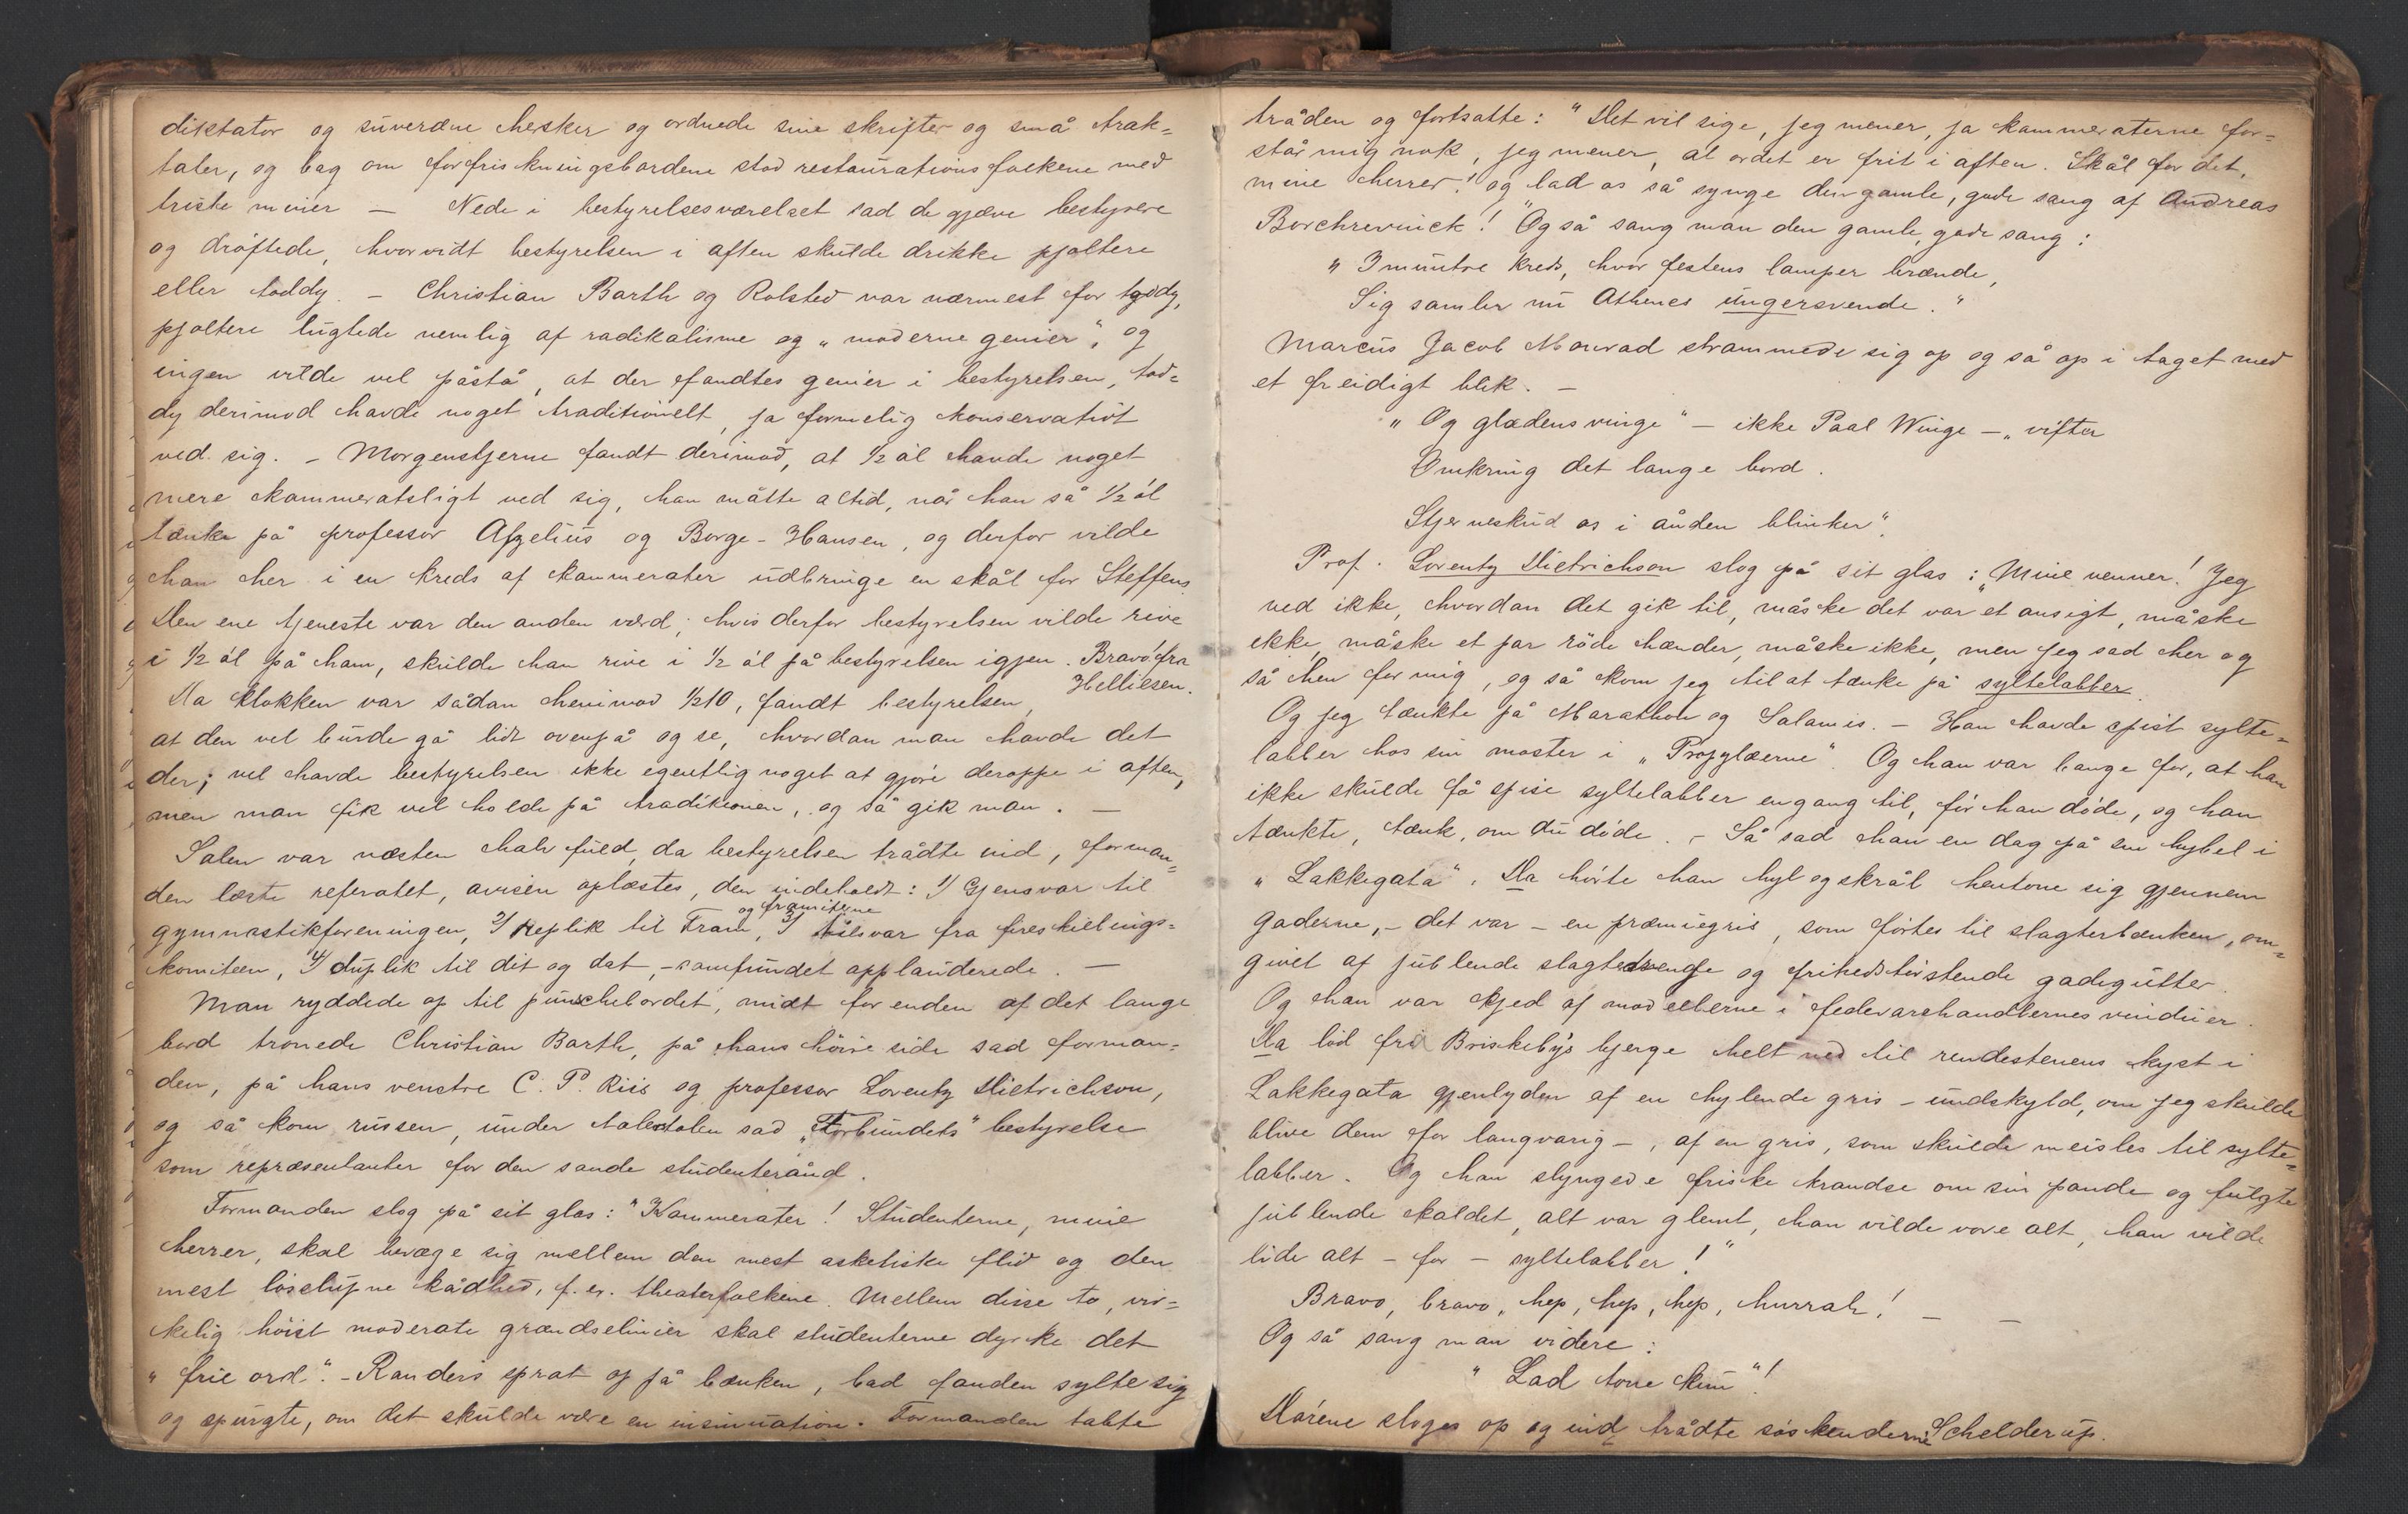 diktator og suveræne hersker og ordnede sine skrifter og små trak-
tater, og bag om forfriskningsbordene stod restaurationsfolkene med
triste miner — Nede i bestyrelsesværelset sad de gjæve bestyrere
og drøftede, hvorvidt bestyrelsen i aften skulde drikke pjoltere
eller toddy. – Christian Barth og Rolsted var nærmest for toddy,
pjoltere lugtede nemlig af radikalisme og „moderne genier", og
ingen vilde vel påstå, at der fandtes genier i bestyrelsen, tod-
dy derimod havde noget traditionelt, ja formelig konservativt
ved sig. – Morgenstjerne fandt derimod, at ½ øl havde noget
mere kammeratsligt ved sig, han måtte altid, når han så ½ øl
tænke på professor Afzelius og Borge-Hansen, og derfor vilde
han her i en kreds af kammerater udbringe en skål for Steffens.
Den ene tjeneste var den anden værd; hvis derfor bestyrelsen vilde rive
i ½ øl på ham, skulde han rive i ½ øl på bestyrelsen igjen. Bravo fra
Helliesen.
Da klokken var sådan henimod ½10, fandt bestyrelsen,
at den vel burde gå lidt ovenpå og se, hvordan man havde det
der; vel havde bestyrelsen ikke egentlig noget at gjøre deroppe i aften,
men man fik vel holde på traditionen, og så gik man. —
Salen var næsten halv fuld, da bestyrelsen trådte ind, forman-
den læste referatet, avisen oplæstes, den indeholdt: 1/ Gjensvar til
og framiterne
gymnastikforeningen, 2/ replik til Fram, 3/ tilsvar fra fireskillings-
komiteen, 4/ duplik til dit og dat, – samfundet applauderede. —
Man ryddede op til punschebordet, midt for enden af det lange
bord tronede Christian Barth, på hans høire side sad forman-
den, på hans venstre C. P. Riis og professor Lorentz Dietrichson,
og så kom russen, under talerstolen sad „Forbundets" bestyrelse
som repræsentanter for den sande studenterånd.
Formanden slog på sit glas: "Kammerater! Studenterne, mine
herrer, skal bevæge sig mellem den mest asketiske flid og den
mest løselupne kådhed, f. ex. theaterfolkene. Mellem disse to, vir-
kelig høist moderate grændselinier skal studenterne dyrke det
„frie ord". – Randers sprat op på bænken, bad fanden sylte sig
og spurgte, om det skulde være en insinuation. Formanden tabte
tråden og fortsatte: "Det vil sige, jeg mener, ja kammeraterne for-
står mig nok, jeg mener, at ordet er frit i aften. Skål for det,
mine herrer! og lad os så synge den gamle, gode sang af Andreas
Borchrevinck!" Og så sang man den gamle, gode sang:
„I muntre kreds, hvor festens lamper brænde,
Sig samler nu Athenes ungersvende."
Marcus Jacob Monrad strammede sig op og så op i taget med
et freidigt blik. –
„Og glædens vinge" – ikke Paal Winge – „vifter
Omkring det lange bord.
Stjerneskud os i ånden blinker".
Prof. Lorentz Dietrichson slog på sit glas: „Mine venner! Jeg
ved ikke, hvordan det gik til, måske det var et ansigt, måske
ikke, måske et par røde hænder, måske ikke, men jeg sad her og
så hen for mig, og så kom jeg til at tænke på syltelabber.
Og jeg tænkte på Marathon og Salamis. – Han havde spist sylte-
labber hos sin moster i „Propylæerne". Og han var bange for, at han
ikke skulde få spise syltelabber engang til, før han døde, og han
tænkte, tænk, om du døde. – Så sad han en dag på sin hybel i
„Lakkegata". Da hørte han hyl og skrål hentone sig gjennem
gaderne, – det var – en præmiegris, som førtes til slagterbænken, om-
givet af jublende slagtersvenge og frihedstørstende gadegutter.
Og han var kjed af modellerne i fedevarehandlernes vinduer.
Da lød fra Briskebys bjerge helt ned til rendestenens kyst i
Lakkegata gjenlyden af en hylende gris – undskyld, om jeg skulde
blive dem for langvarig –, af en gris, som skulde meisles til sylte-
labber. Og han slyngede friske krandse om sin pande og fulgte
jublende kaldet, alt var glemt, han vilde vove alt, han vilde
lide alt – for – syltelabber!"
Bravo, bravo, hep, hep, hep, hurrah! – –
Og så sang man videre:
"Lad tone kun"!
Dørene sloges op og ind trådte søskenderne Schelderup.